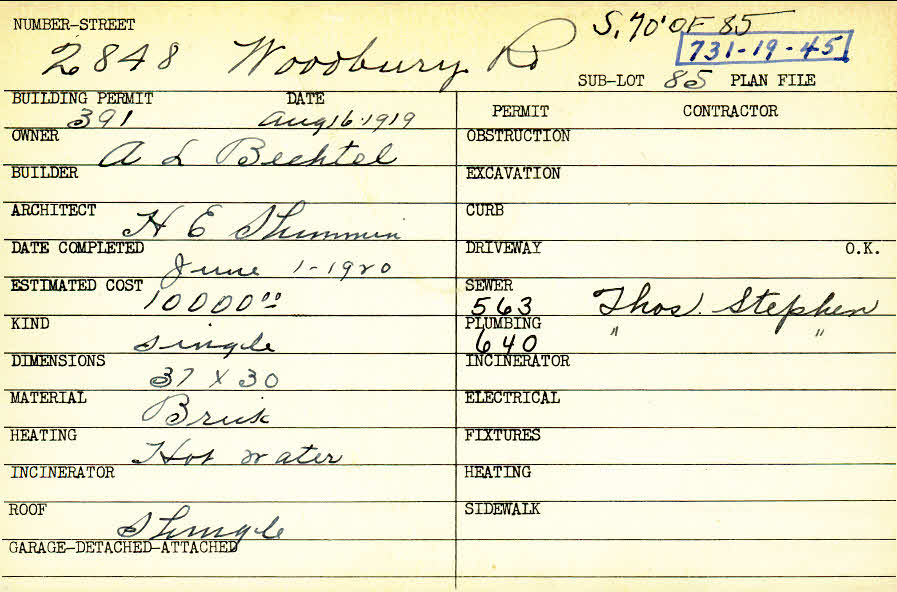 NUMBER-STREET
S. 70' OF 85
2848 Woodbury Rd
731-19-45
SUB-LOT 85 PLAN FILE
BUILDING PERMIT DATE
391 Aug 16-1919
PERMIT CONTRACTOR
OWNER
A L Bechtel
OBSTRUCTION
BUILDER
EXCAVATION
ARCHITECT
H E Shimmin
CURB
DATE COMPLETED
June 1-1920
DRIVEWAY O.K.
ESTIMATED COST
10000⁰⁰
SEWER
563 Thos. Stephen
KIND
single
PLUMBING
640 " "
DIMENSIONS
37 X 30
INCINERATOR
MATERIAL
Brick
ELECTRICAL
HEATING
Hot water
FIXTURES
INCINERATOR
HEATING
ROOF
Shingle
SIDEWALK
GARAGE-DETACHED-ATTACHED